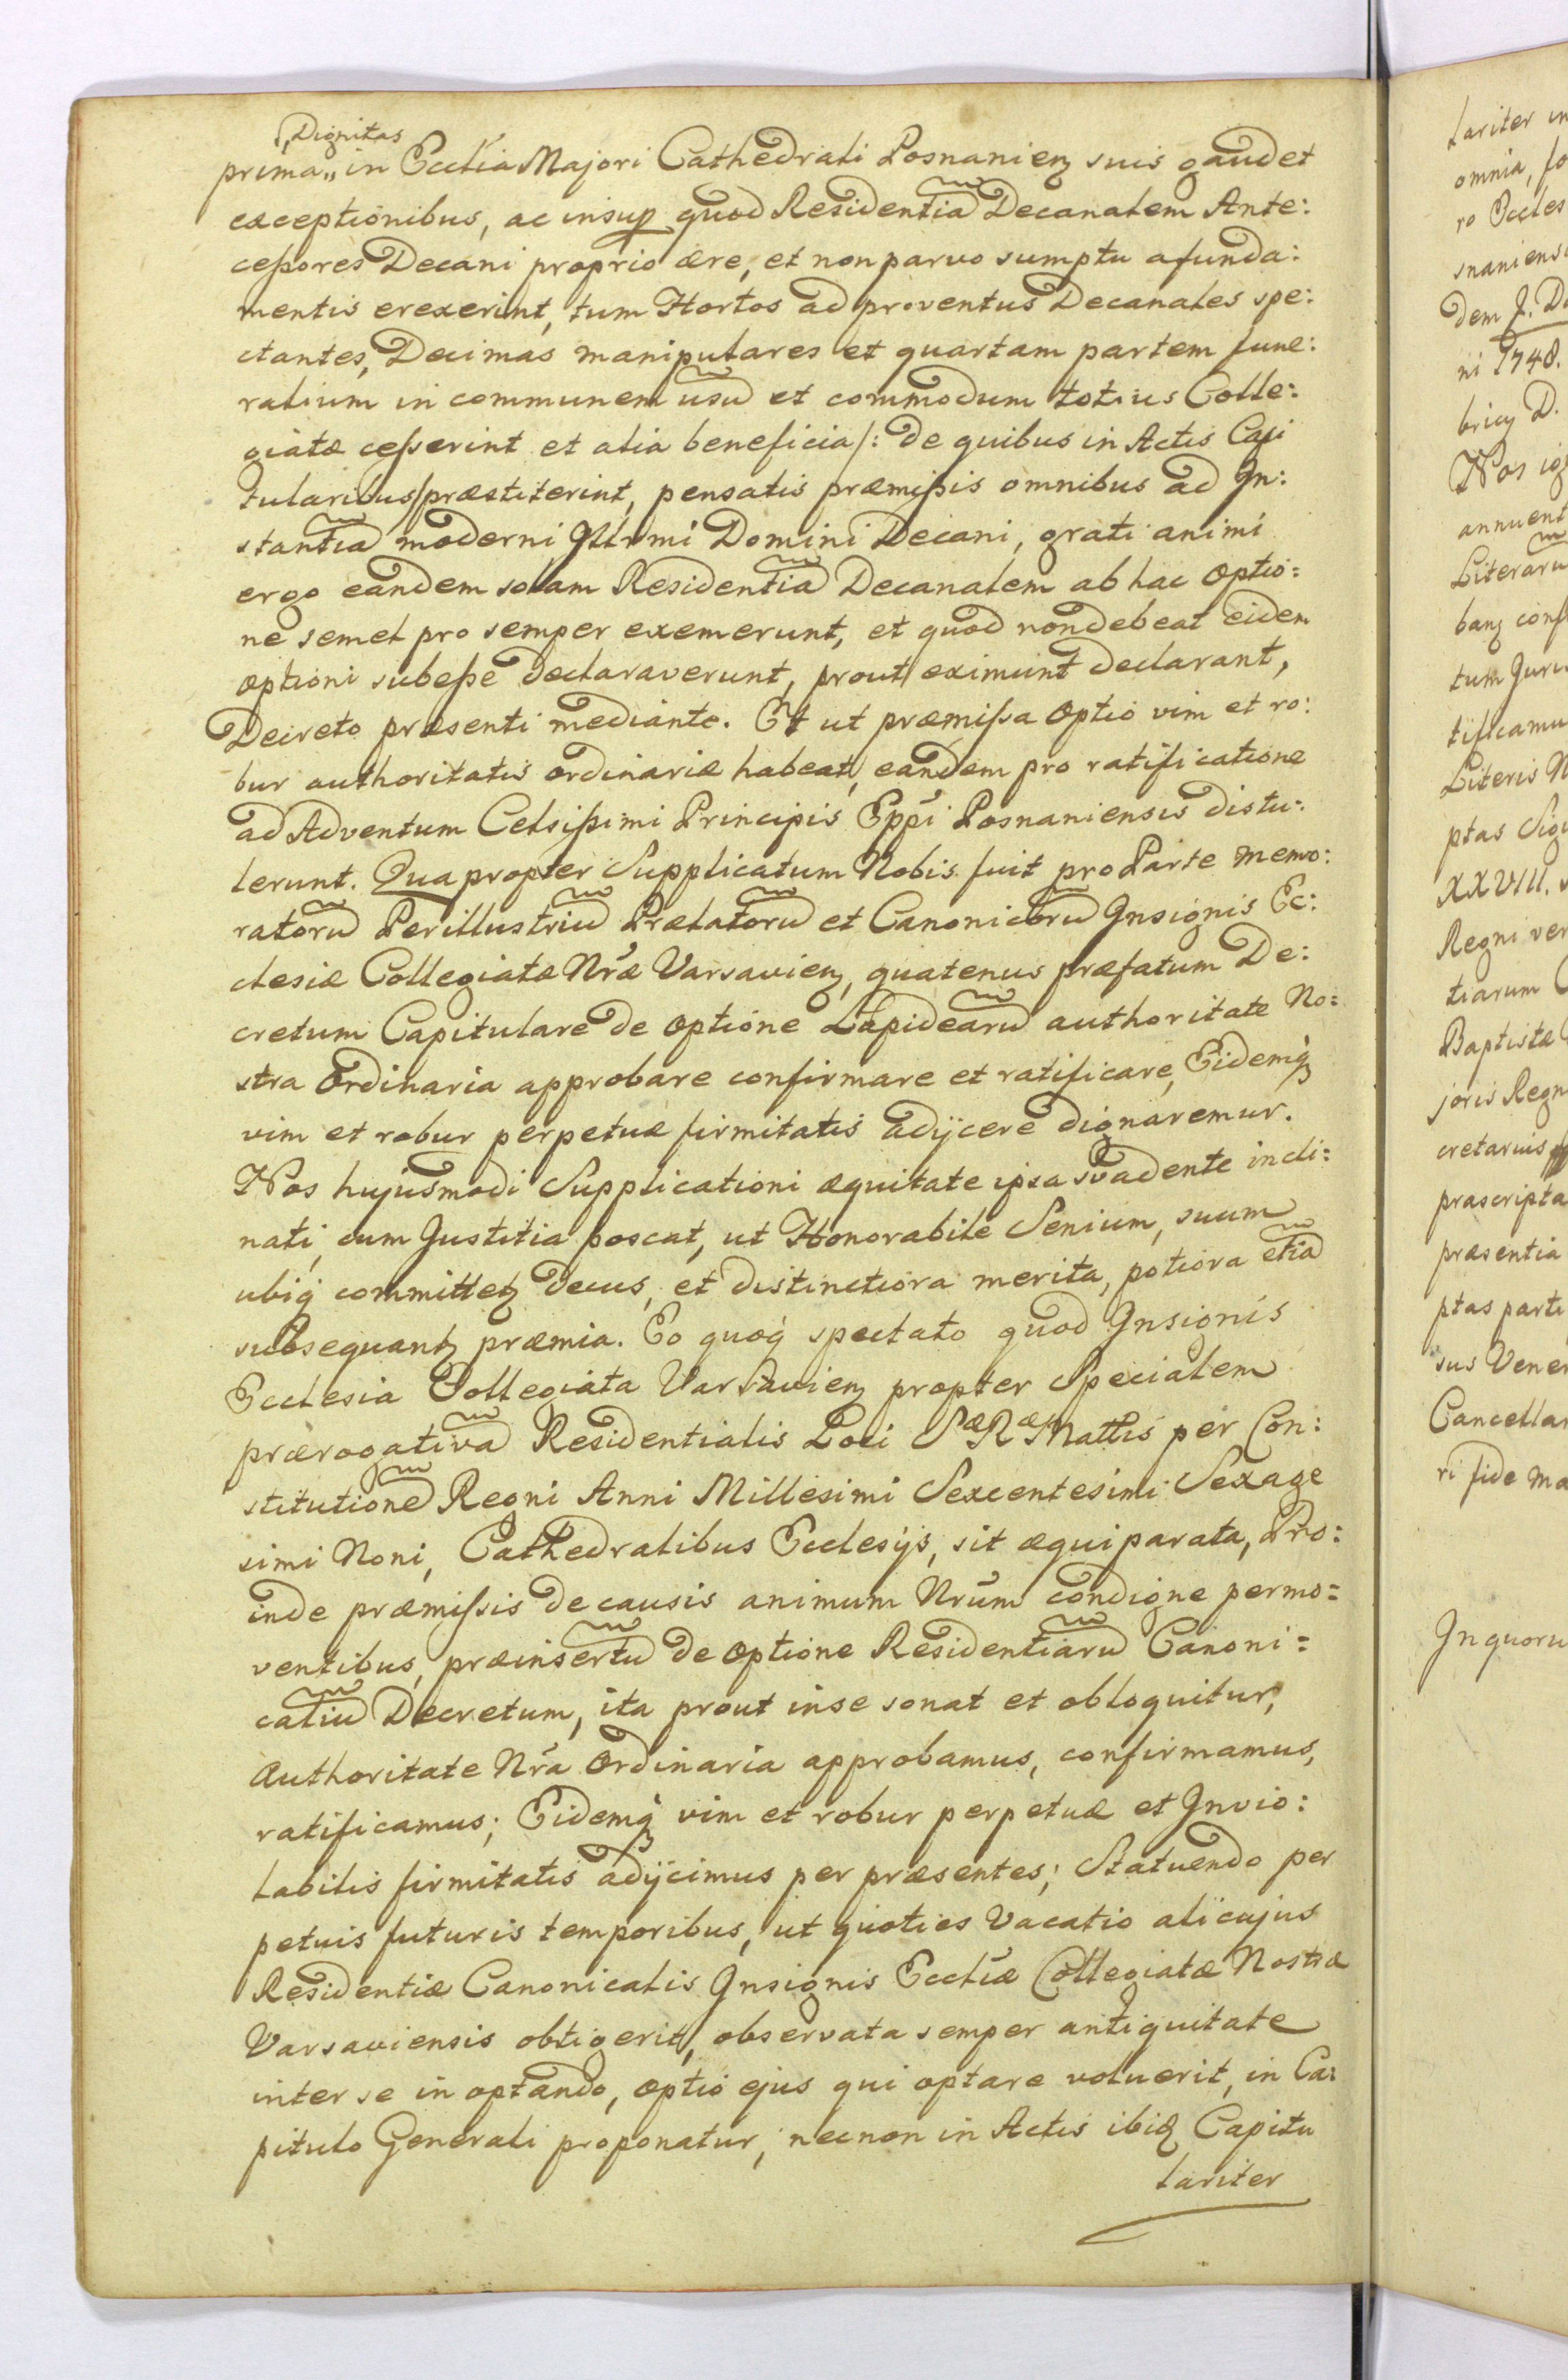 Dignitas
prima,, in Ecclia Majori Cathedrali Posnanien suis gaudet
exceptionibus, ac insup quod Residentia Decanalem Ante:
ceßores Decani proprio ære, et non parvo sumptu a funda:
mentis erexerint, tum Hortos ad proventus Decanales spe:
ctantes, Decimas manipulares et quartam partem fune:
ralium in communem usu et commodum totius Colle:
giatæ ceßerint et alia beneficia /: de quibus in Actis Capi
tularibus/ præstiterint, pensatis præmißis omnibus ad In:
stantia moderni Illrmi Domini Decani, grati animi
ergo eandem solam Residentia Decanalem ab hac Optio:
ne semel pro semper exemerunt, et quod non debeat eidem
optioni subeße declaraverunt, prout eximunt declarant,
Decreto præsenti mediante. Et ut præmißa Optio vim et ro:
bur authoritatis ordinariæ habeat, eandem pro ratificatione
ad Adventum Celsißimi Principis Eppi Posnaniensis distu:
lerunt. Quapropter Supplicatum Nobis fuit pro Parte memo:
ratoru Perillustriu Prælatoru et Canonicoru Insignis Ec:
clesiæ Collegiatæ Nræ Varsavien, quatenus præfatum De:
cretum Capitulare de optione Lapidearu authoritate No:
stra Ordinaria approbare confirmare et ratificare, Eidemq
vim et robur perpetuæ firmitatis adijcere dignaremur.
Nos hujusmodi Supplicationi æquitate ipsa svadente incli:
nati, cum Justitia poscat, ut Honorabile Senium, suum
ubiq committet decus, et distinctiora merita, potiora etia
subsequant præmia. Eo quoq spectato quod Insignis
Ecclesia Collegiata Varsavien propter Specialem
prærogativa Residentialis Loci Sæ Ræ Mattis per Con:
stitutione Regni Anni Millesimi Sexcentesimi Sexage
simi Noni, Cathedralibus Ecclesijs, sit æquiparata, Pro:
inde præmißis de causis animum Nrum condigne permo=
ventibus, præinsertu de Optione Residentiaru Canoni=
caliu Decretum, ita prout in se sonat et obloquitur,
Authoritate Nra Ordinaria approbamus, confirmamus,
ratificamus; Eidemq vim et robur perpetuæ et Invio:
labilis firmitatis adijcimus per præsentes; Statuendo per
petuis futuris temporibus, ut quoties Vacatio alicujus
Residentiæ Canonicalis Insignis Eccliæ Collegiatæ Nostræ
Varsaviensis obtigerit, observata semper antiquitate
inter se in optando, optio ejus qui optare voluerit, in Ca:
pitulo Generali proponatur, necnon in Actis ibiq Capitu
lariter
lariter in
omnia, fo
ro Eccles
snaniensi
dem J. D
ni 1748.
bricy D.
Nos ig
annuent
Literaru
banz conf
tum Juri
tificamu
Literis N
ptas Sig
XXVIII.
Regni ver
tiarum
Baptistæ
joris Regn
cretarius
præscripta
præsentia
ptas parti
sus Vener
Cancellar
ri fide ma
In quoru